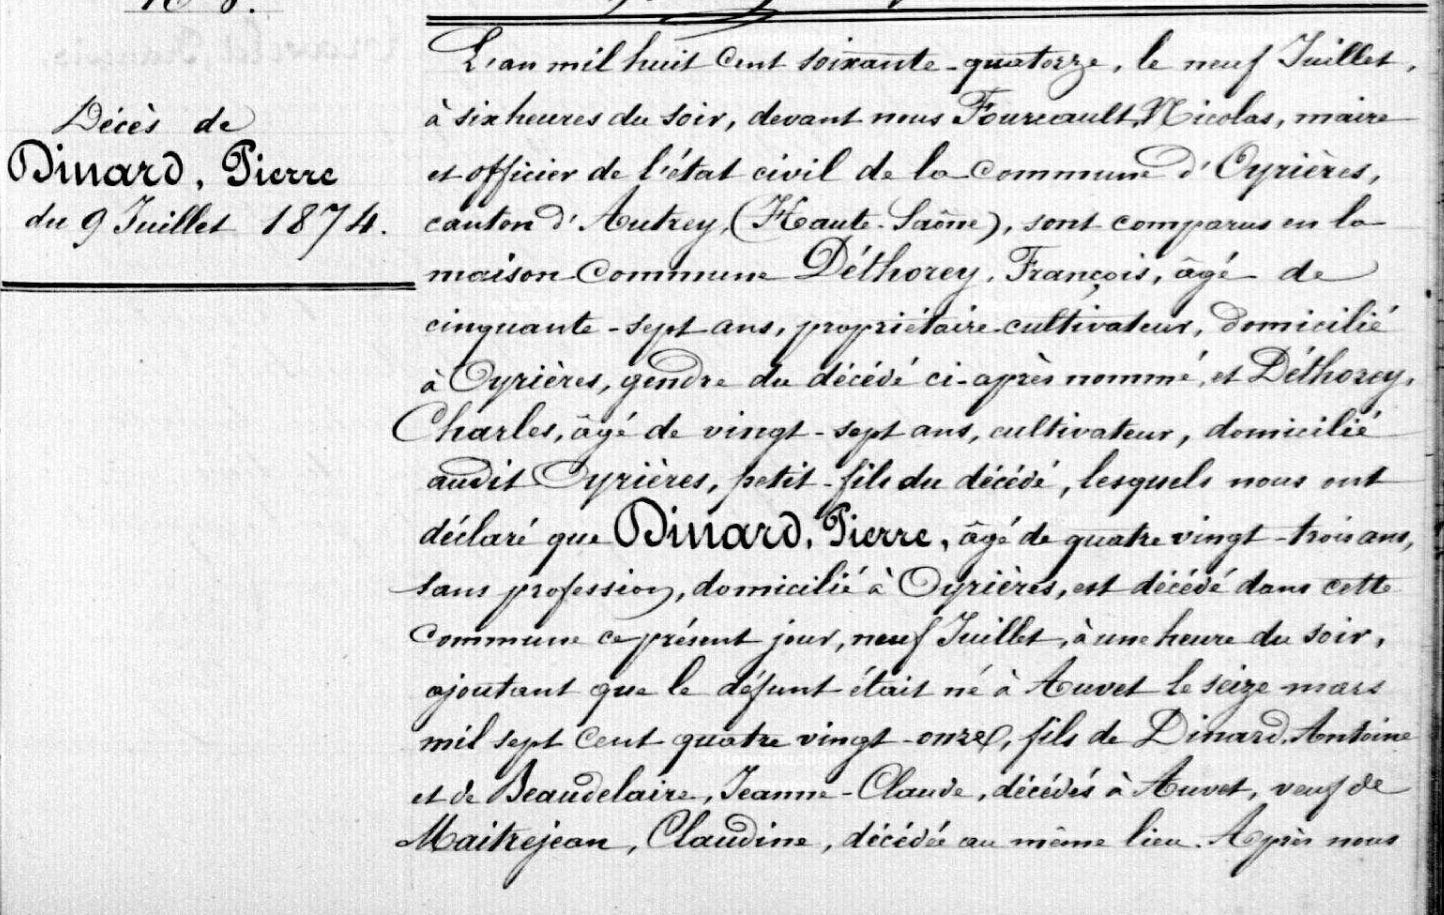 Décès de
Dinard, Pierre
du 9 Juillet 1874.
L'an mil huit cent soixante-quatorze, le neuf Juillet,
à six heures du soir, devant nous Fourcault, Nicolas, maire
et officier de l'état civil de la commune d'Oyrières,
canton d'Autrey, (Haute-Saône), sont comparus en la
maison commune Déthorey, François, âgé de
cinquante-sept ans, propriétaire-cultivateur, domicilié
à Oyrières, gendre du décédé ci-après nommé, et Déthorey,
Charles, âgé de vingt-sept ans, cultivateur, domicilié
audit Oyrières, petit-fils du décédé, lesquels nous ont
déclaré que Dinard, Pierre, âgé de quatre vingt-trois ans,
sans profession, domicilié à Oyrières, est décédé dans cette
commune ce présent jour, neuf Juillet, à une heure du soir,
ajoutant que le défunt était né à Auvet le seize mars
mil sept cent quatre vingt-onze, fils de Dinard, Antoine
et de Beaudelaire, Jeanne-Claude, décédés à Auvet, veuf de
Maitrejean, Claudine, décédée au même lieu. Après nous